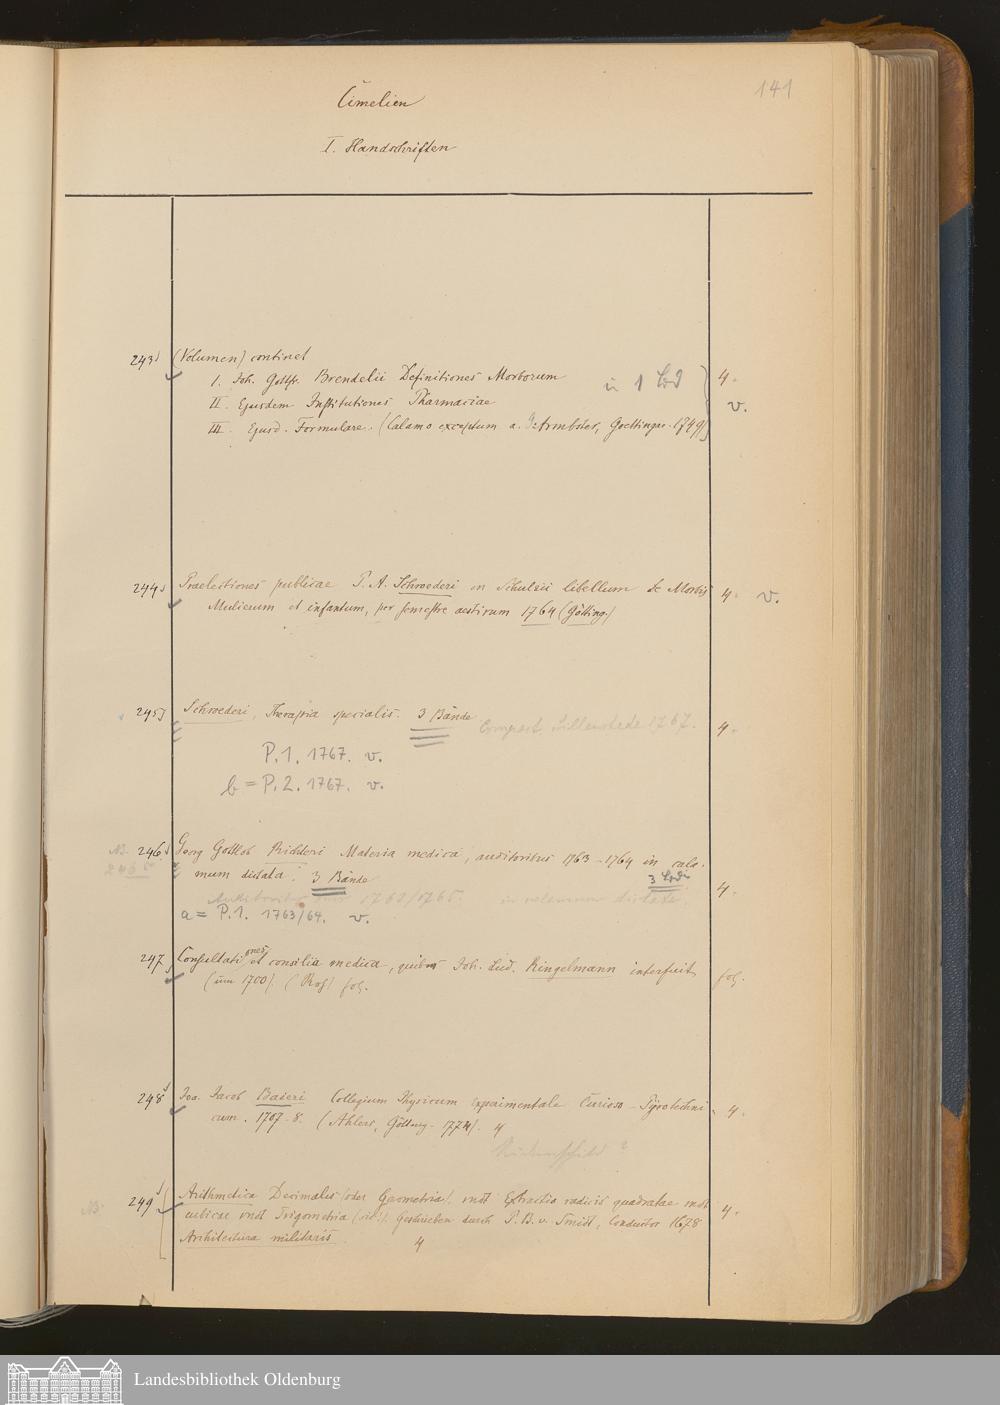 141
Cimelien
I. Handschriften
243 (Volumen) continet
I. Joh. Gottfr. Brendelii Definitiones Morborum
in 1 Bd
4.
II. Ejusdem Institutiones Pharmaciae
v.
III. Ejusd. Formulare. (Calamo exceptum a. Armbster, Goettingae. 1749)
244 Praelectiones publicae P. A. Schroederi in Schulzii libellum de Morbis
4. v.
Mulierum et infantum, per semestre aestivum 1764 (Götting.)
245 Schroederi, Therapia specialis. 3 Bände
4.
1767.
P. 1. 1767. v.
b = P. 2. 1767. v.
NB. 246 Georg Gottlob Richteri Materia medica, auditoribus 1763-1764 in cala-
mum dictata. 3 Bände
3 Bde
4.
a = P. 1. 1763/64. v.
247 Consultationes et consilia medica, quibus Joh. Lud. Ringelmann interfuit
fol.
(um 1700). fol.
248 Joa. Jacob Baieri Collegium Physicum experimentale Curioso-Pyrotechni-
4.
cum. 1707-8. (Ahlers, Götting. 1774). 4
NB. 249 Arithmetica Decimalis (oder Geometria), undt Extractio radicis quadratae undt
4.
cubicae undt Trigometria (sic!). Geschrieben durch P. B. v. Smidt, Conductor 1678
Architectura militaris.
4
Landesbibliothek Oldenburg